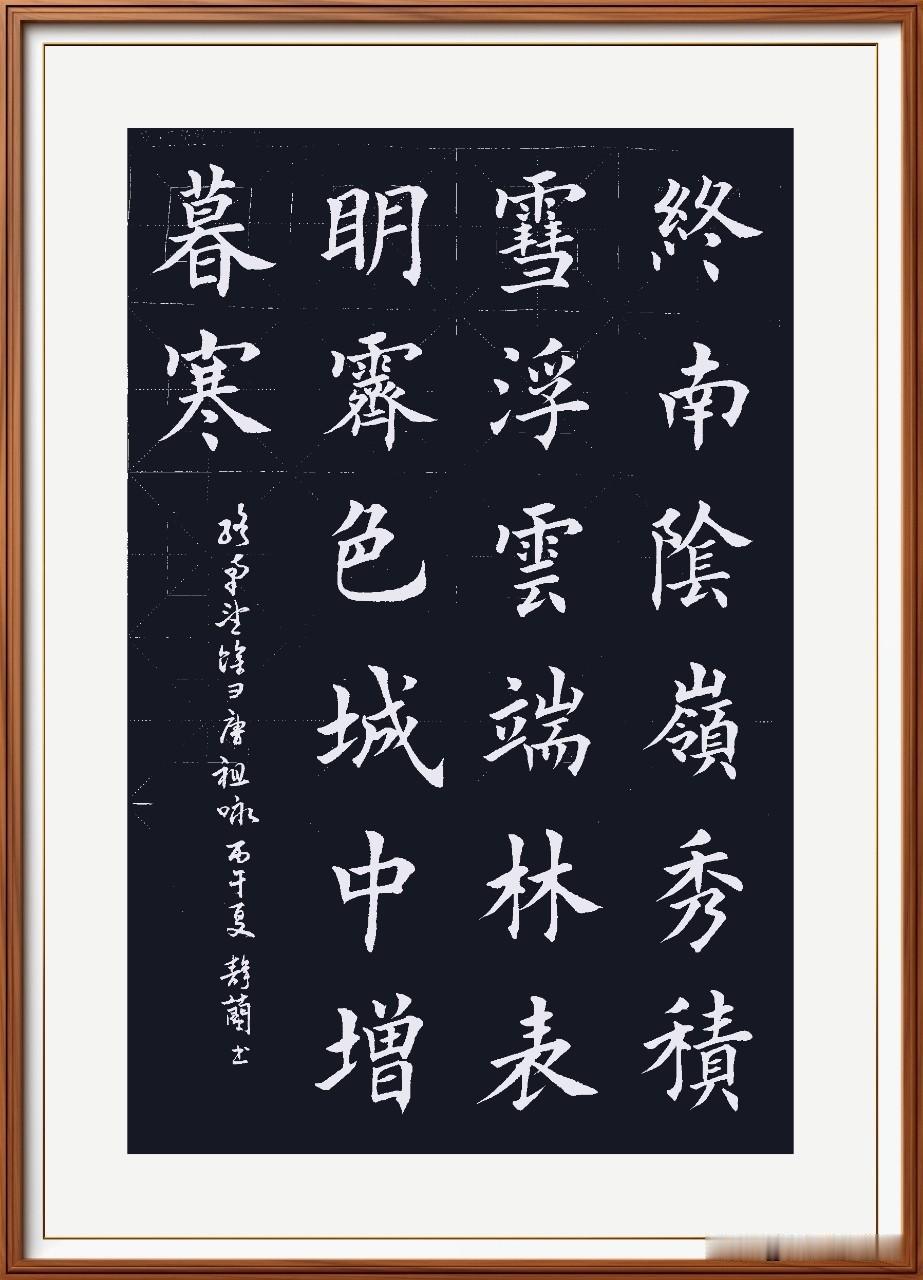 終南陰嶺秀積
䨮浮雲端林表
明霽色城中增
暮寒
終南望餘雪唐祖咏丙午夏靜蘭书